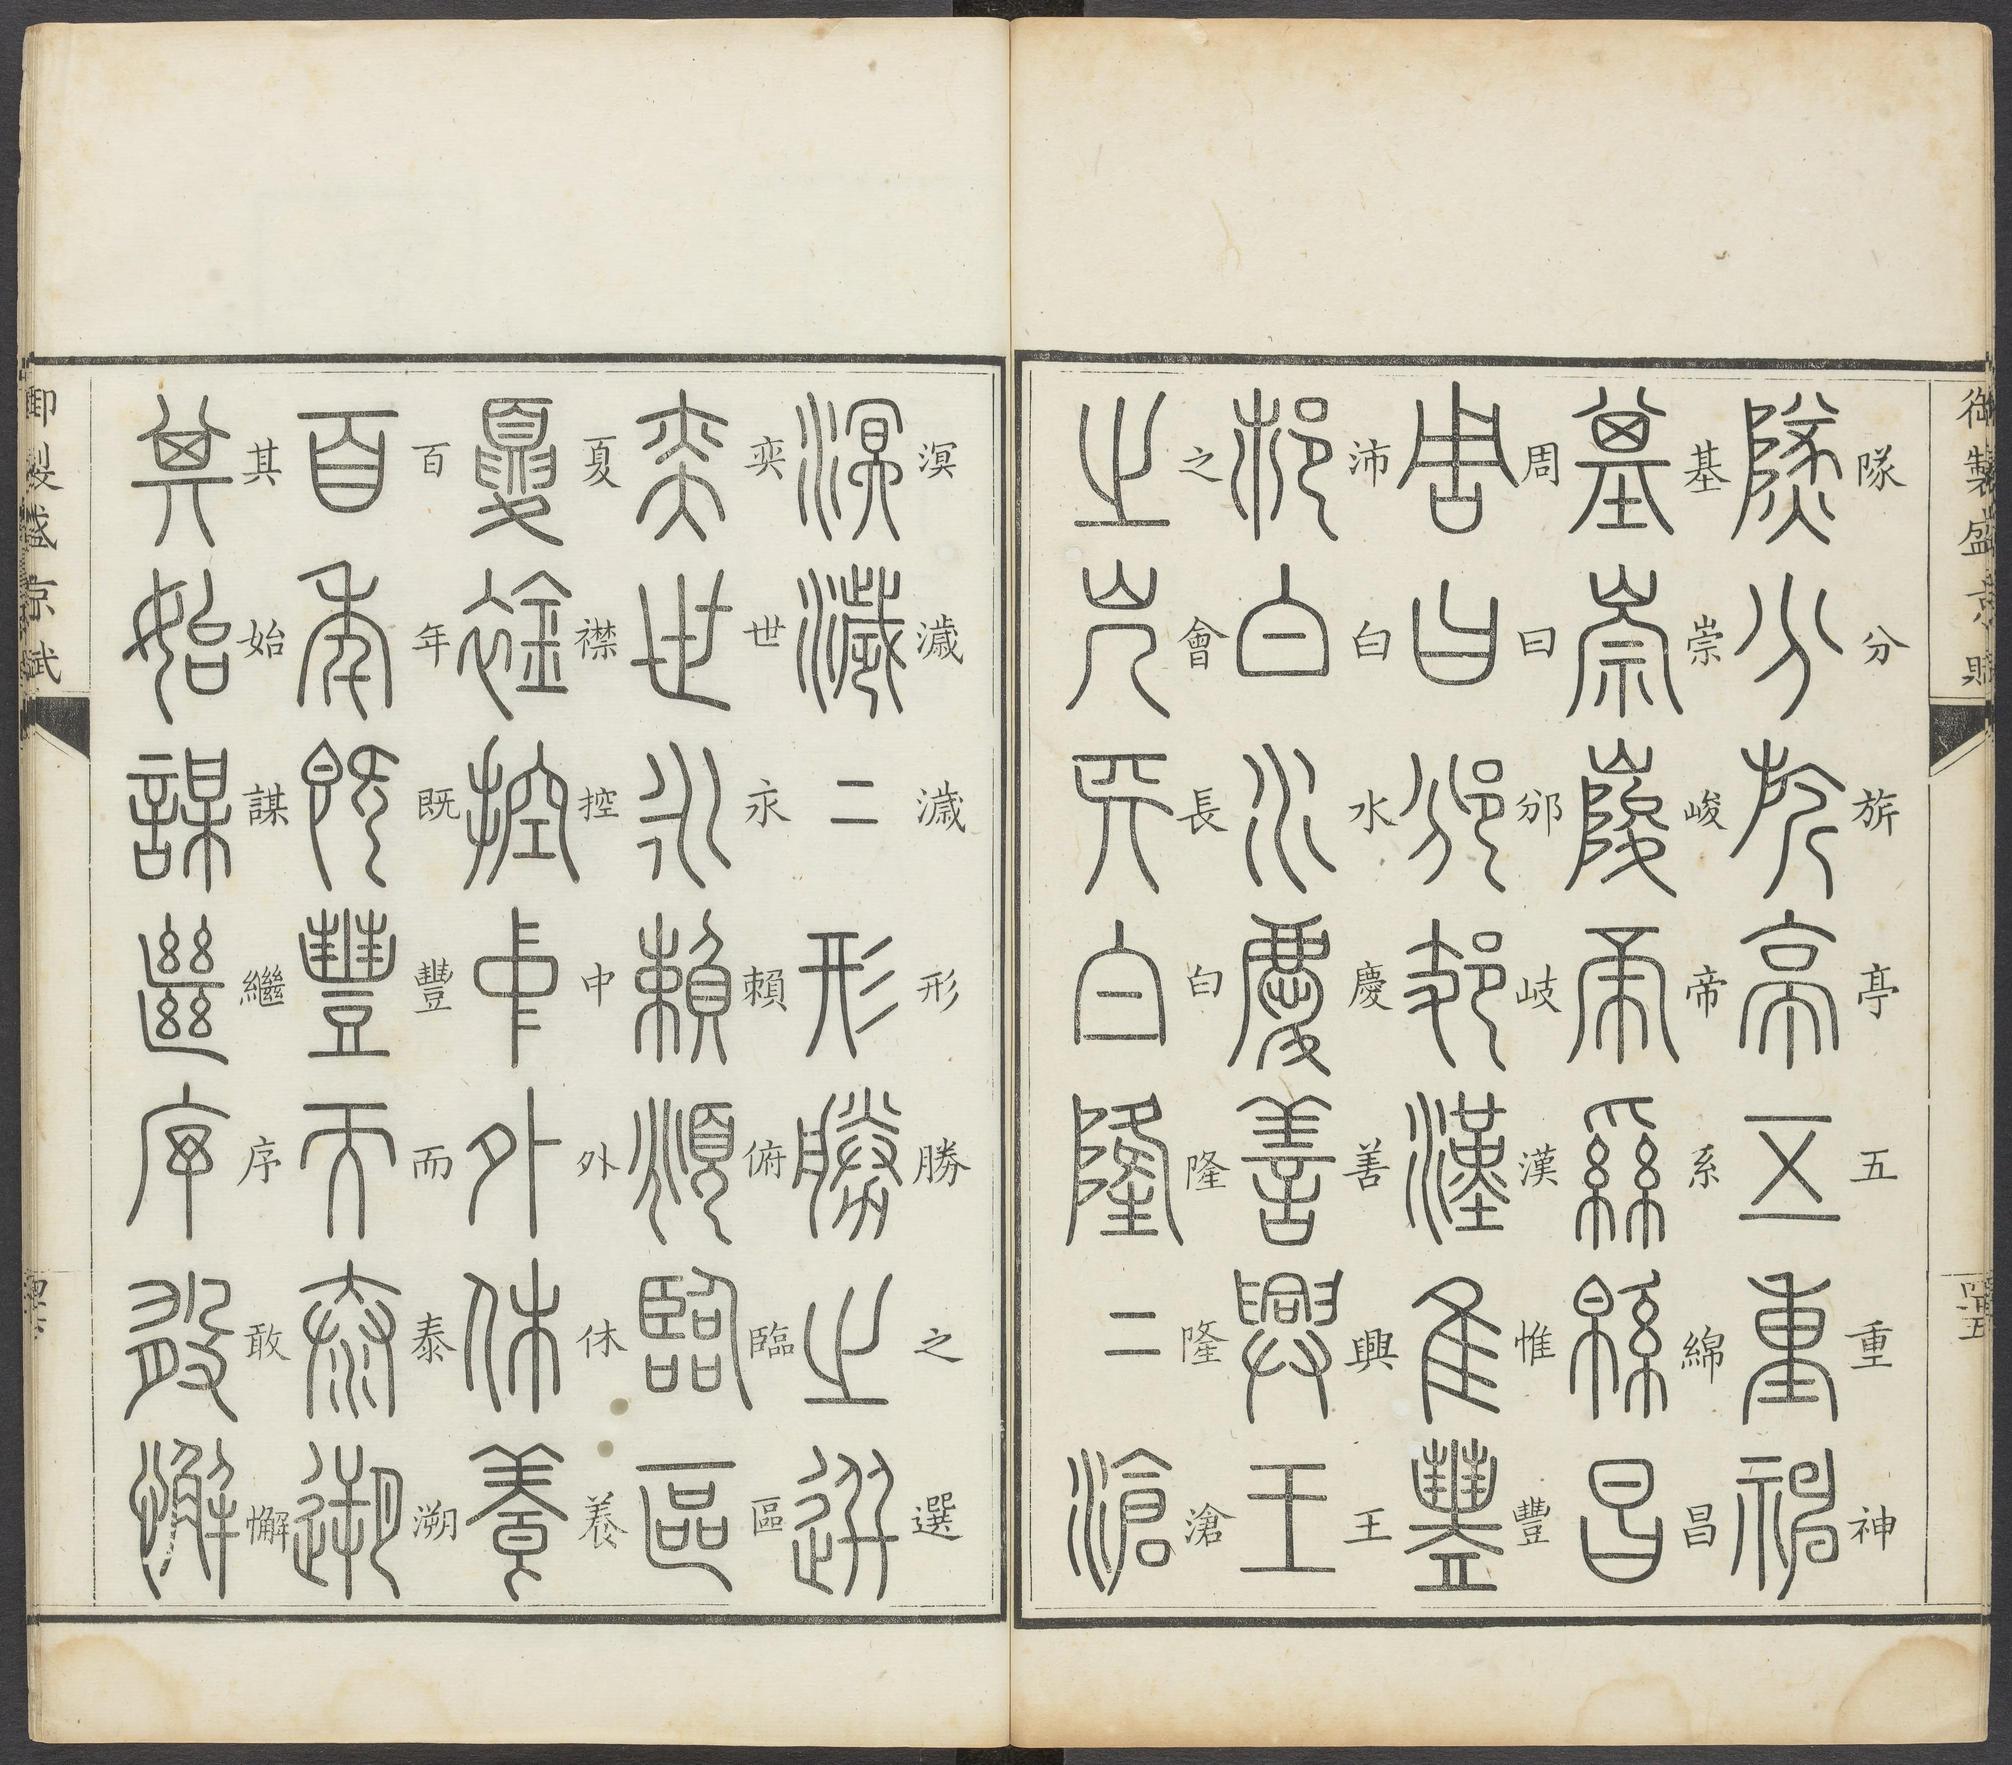 御製盛京賦
隊分旂亭五重神
基崇峻帝系綿昌
周曰邠岐漢惟豐
沛白水慶善興王
之會長白隆隆滄
溟濊濊形勝之選
奕世永賴俯臨區
夏襟控中外休養
百年既豐而泰溯
其始謀繼序敢懈
御製盛京賦